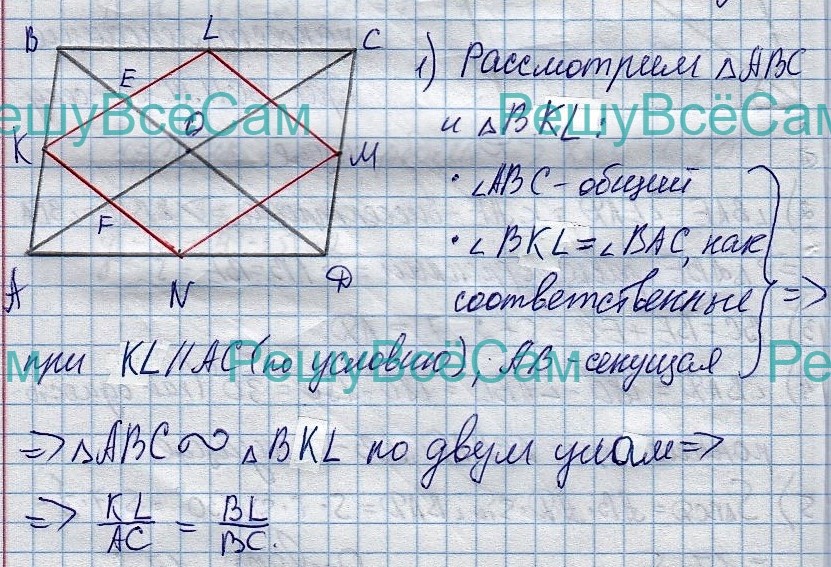 B L C
E
O
K M
F
A N D
1) Рассмотрим △ABC
и △BKL:
• ∠ABC - общий
• ∠BKL = ∠BAC, как
соответственные
при KL // AC (по условию), AB - секущая
=>
=> △ABC ∾ △BKL по двум углам =>
=> KL/AC = BL/BC.
РешуВсёСам РешуВсёСам
РешуВсёСам РешуВсёСам РешуВсёСам